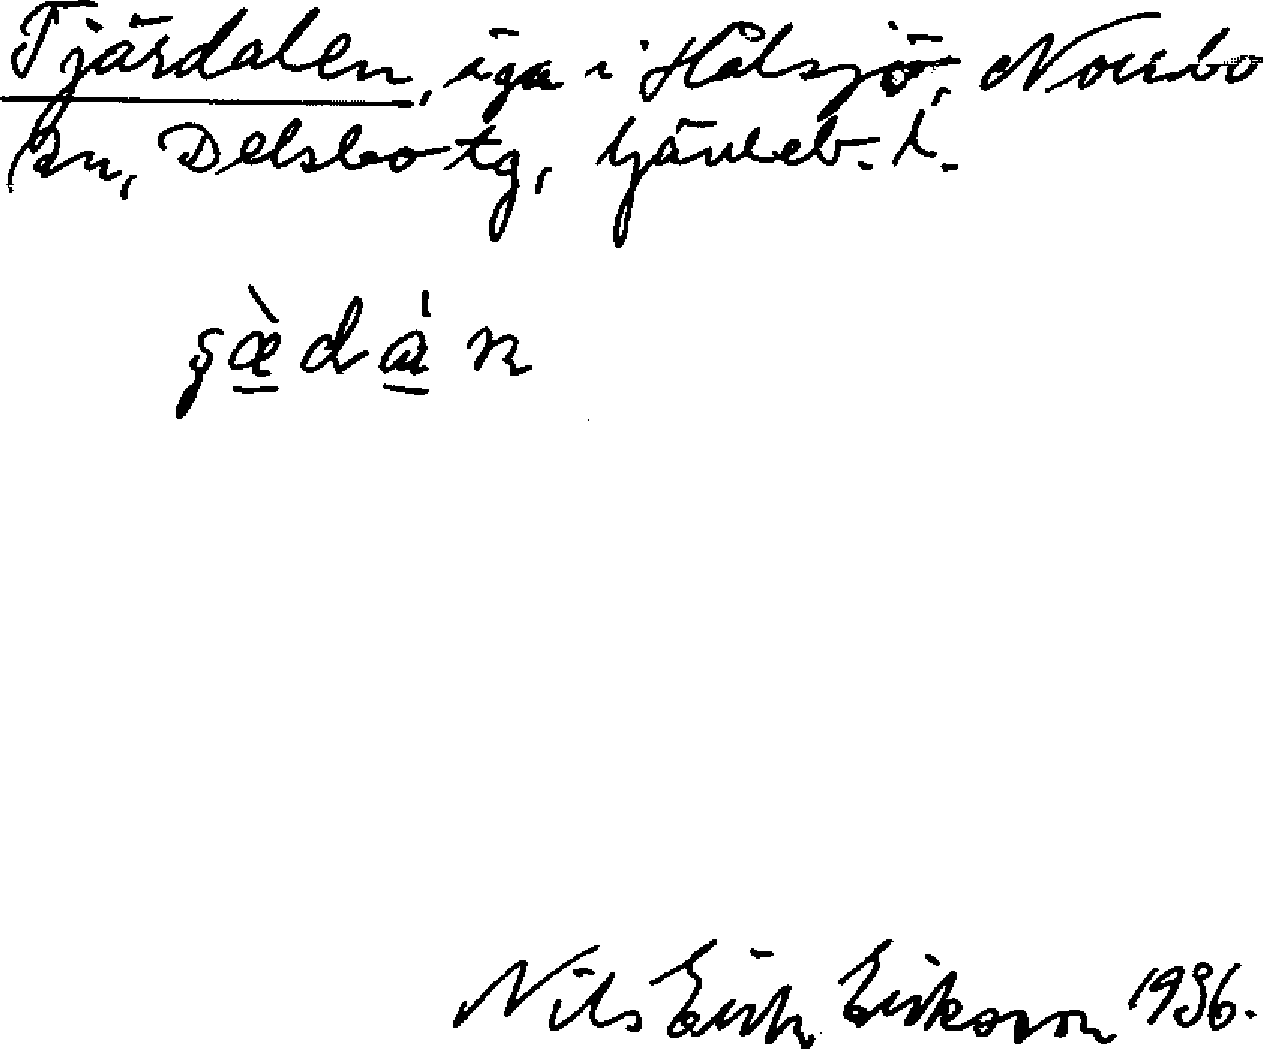 Tjärdalen, äga i Hålsjö, Norrbo
sn, Delsbo tg, Gävleb. l.
Nils Erik Eriksson 1936.